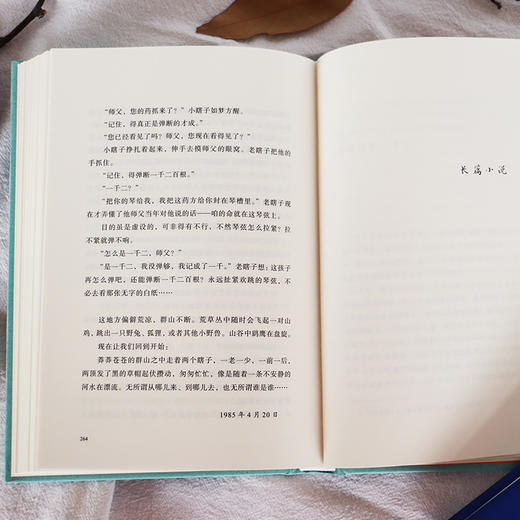 “师父，您的药抓来了？”小瞎子如梦方醒。
“记住，得真正是弹断的才成。”
“您已经看见了吗？师父，您现在看得见了？”
小瞎子挣扎着起来，伸手去摸师父的眼窝。老瞎子把他的
手抓住。
“记住，得弹断一千二百根。”
“一千二？”
“把你的琴给我，我把这药方给你封在琴槽里。”老瞎子现
在才弄懂了他师父当年对他说的话——咱的命就在这琴弦上。
目的虽是虚设的，可非得有不行，不然琴弦怎么拉紧？拉
不紧就弹不响。
“怎么是一千二，师父？”
“是一千二，我没弹够，我记成了一千。”老瞎子想：这孩子
再怎么弹吧，还能弹断一千二百根？永远扯紧欢跳的琴弦，不
必去看那张无字的白纸……
这地方偏僻荒凉，群山不断。荒草丛中随时会飞起一对山
鸡，跳出一只野兔、狐狸，或者其他小野兽。山谷中鹞鹰在盘旋。
现在让我们回到开始：
莽莽苍苍的群山之中走着两个瞎子，一老一少，一前一后，
两顶发了黑的草帽起伏攒动，匆匆忙忙，像是随着一条不安静的
河水在漂流。无所谓从哪儿来、到哪儿去，也无所谓谁是谁……
1985年4月20日
264
长篇小说